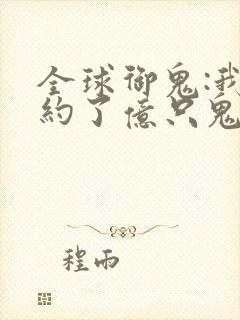 全球御鬼:我
約了億只鬼
程雨